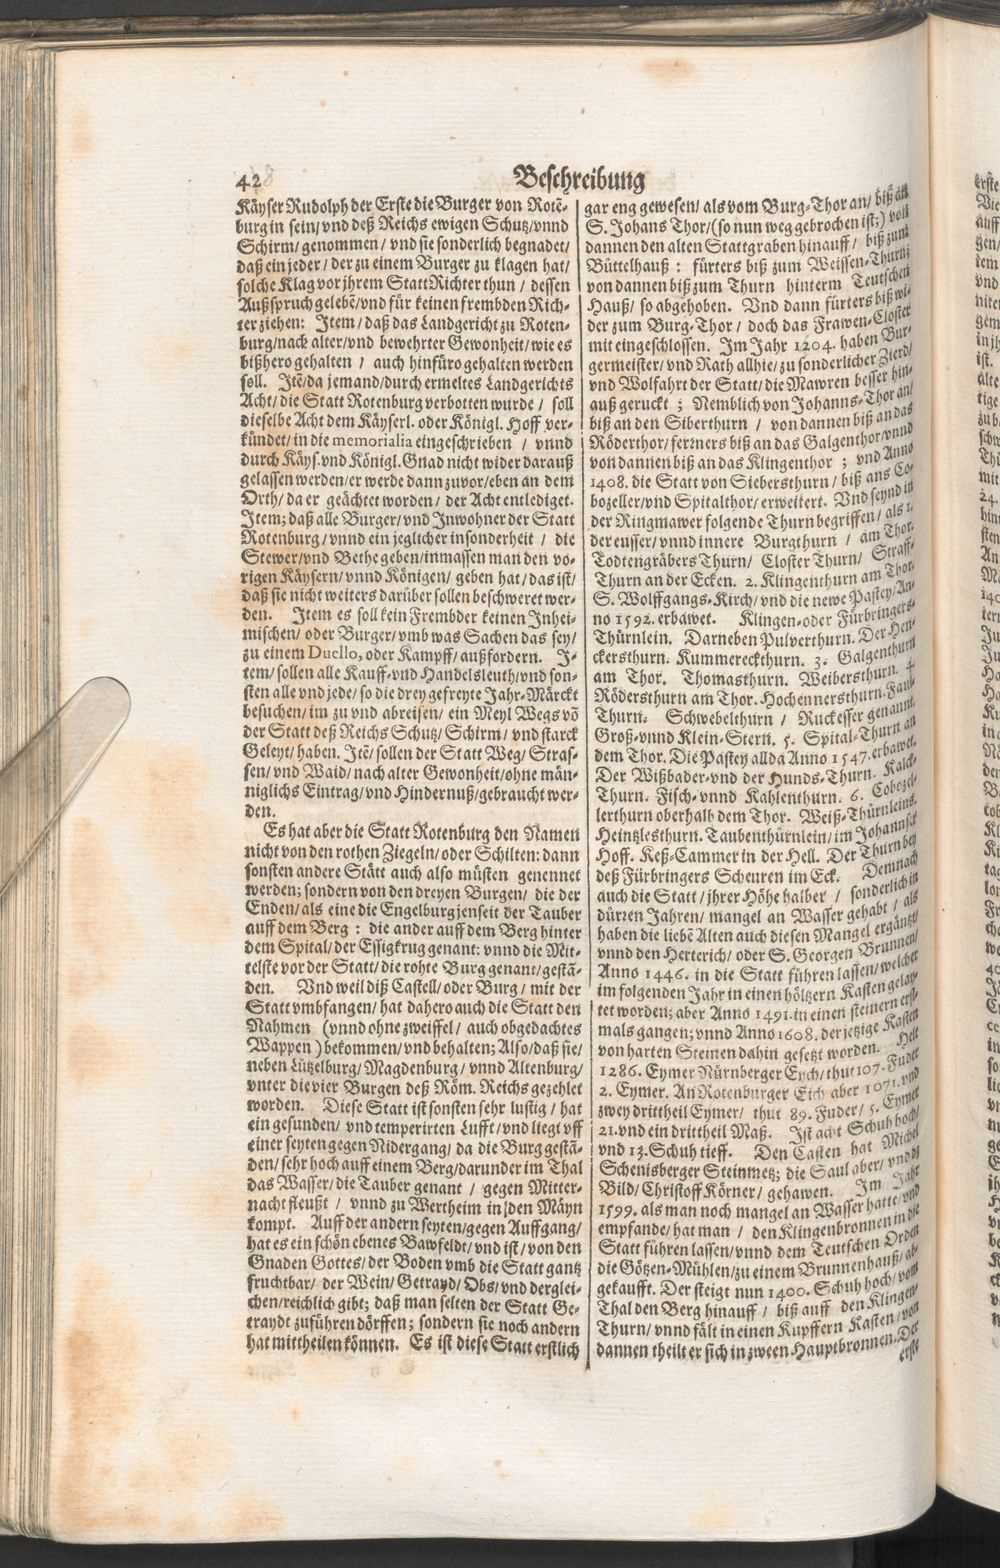 42
Beschreibung
Käyser Rudolph der Erste die Burger von Rotē-
burg in sein/vnd deß Reichs ewigen Schutz/vnnd
Schirm/genommen / vnd sie sonderlich begnadet/
daß ein jeder/ der zu einem Burger zu klagen hat/
solche Klag vor jhrem Statt Richter thun / dessen
Außspruch gelebē/vnd für keinen frembden Rich-
ter ziehen: Item/ daß das Landgericht zu Roten-
burg/nach alter/vnd bewehrter Gewonheit/wie es
bißhero gehalten / auch hinfüro gehalten werden
soll. Itē/da jemand/durch ermeltes Landgerichts
Acht/ die Statt Rotenburg verbotten wurde / soll
dieselbe Acht dem Käyserl. oder Königl. Hoff ver-
kündet/ in die memorialia eingeschrieben / vnnd
durch Käys. vnd Königl. Gnad nicht wider darauß
gelassen werden/er werde dann zuvor/eben an dem
Orth/ da er geächtet worden / der Acht entlediget.
Item; daß alle Burger/ vnd Inwohner der Statt
Rotenburg / vnnd ein jeglicher insonderheit / die
Stewer/vnd Bethe geben/inmassen man den vo-
rigen Käysern/ vnnd Königen/ geben hat/das ist/
daß sie nicht weiters darüber sollen beschweret wer-
den. Item es soll kein Frembder keinen Inhei-
mischen/ oder Burger/ vmb was Sachen das sey/
zu einem Duello, oder Kampff/ außfordern. I-
tem/ sollen alle Kauff-vnd Handelsleuth/vnd son-
sten alle vnd jede/ so die drey gefreyte Jahr-Märckt
besuchen/im zu vnd abreisen/ ein Meyl Wegs võ
der Statt deß Reichs Schutz/Schirm/ vnd starck
Geleyt/ haben. Itē/ sollen der Statt Weg/ Stras-
sen/ vnd Waid/ nach alter Gewonheit/ohne män-
niglichs Eintrag/ vnd Hindernuß/gebraucht wer-
den.
Es hat aber die Statt Rotenburg den Namen
nicht von den rothen Ziegeln/ oder Schilten: dann
sonsten andere Stätt auch also müsten genennet
werden; sondern von den dreyen Burgen/ die der
Enden/als eine die Engelburg jenseit der Tauber
auff dem Berg : die ander auff dem Berg hinter
dem Spital/ der Essigkrug genant: vnnd die Mit-
telste vor der Statt/ die rohte Burg genant/gestā-
den. Vnd weil diß Castell/ oder Burg / mit der
Statt vmbfangen/ hat dahero auch die Statt den
Nahmen (vnnd ohne zweiffel / auch obgedachtes
Wappen) bekommen/vnd behalten; Also/daß sie/
neben Lützelburg/ Magdenburg / vnnd Altenburg/
vnter die vier Burgen deß Röm. Reichs gezehlet
worden. Diese Statt ist sonsten sehr lustig / hat
ein gesunden/ vnd temperirten Lufft/vnd liegt vff
einer seyten gegen Nidergang/ da die Burg gestā-
den/ sehr hoch auff einem Berg/darunder im Thal
das Wasser/ die Tauber genant / gegen Mitter-
nacht fleußt / vnnd zu Wertheim in den Mäyn
kompt. Auff der andern seyten/gegen Auffgang/
hat es ein schön ebenes Bawfeldt/ vnd ist/ von den
Gnaden Gottes/ der Boden vmb die Statt gantz
fruchtbar/ der Wein/ Getrayd/ Obs/ vnd derglei-
chen/reichlich gibt; daß man selten der Statt Ge-
traydt zuführen dörffen; sondern sie noch andern
hat mittheilen können. Es ist diese Statt erstlich
gar eng gewesen/ als vom Burg-Thor an/ biß an
S. Johans Thor/(so nun weggebrochen ist;) von
dannen den alten Stattgraben hinauff / biß zum
Büttelhauß : fürters biß zum Weissen-Thurn:
von dannen biß zum Thurn hinterm Teutschen
Hauß/ so abgehoben. Vnd dann fürters biß wi-
der zum Burg-Thor / doch das Frawen-Closter
mit eingeschlossen. Im Jahr 1204. haben Bur-
germeister/ vnd Rath allhie/ zu sonderlicher Zierd/
vnd Wolfahrt der Statt/ die Mawren besser hin-
auß geruckt ; Nemblich von Johanns-Thor an/
biß an den Siberthurn / von dannen biß an das
Röderthor/ ferzners biß an das Galgenthor/vnnd
von dannen biß an das Klingenthor ; vnd Anno
1408. die Statt von Siebersthurn / biß ans Co-
bozeller/vnd Spitalthor/ erweitert. Vnd seynd in
der Ringmawer folgende Thurn begriffen/ als 1.
der eusser/ vnnd innere Burgthurn / am Thor.
Todtengräbers Thurn/ Closter Thurn/ Straff-
Thurn an der Ecken. 2. Klingenthurn am Thor.
S. Wolffgangs-Kirch/ vnd die newe Pastey/An-
no 1592. erbawet. Klingen-oder Fürbringers-
Thürnlein. Darneben Pulverthurn. Der Hen-
ckersthurn. Kummereckthurn. 3. Galgenthurn
am Thor. Thomasthurn. Weibersthurn. 4.
Rödersthurn am Thor. Hochennersthurn. Faul-
Thurn. Schwebelthurn / Ruckesser genannt.
Groß-vnnd Klein-Stern. 5. Spital-Thurn an
dem Thor. Die Pastey allda Anno 1547. erbawet.
Der Wißbader-vnd der Hunds-Thurn. Kalck-
Thurn. Fisch-vnnd Kahlenthurn. 6. Cobozel-
lerthurn oberhalb dem Thor. Weiß-Thürnleins.
Heintzlesthurn. Taubenthürnlein/ im Johannser
Hoff. Keß-Cammer in der Hell. Der Thurn bey
deß Fürbringers Scheuren im Eck. Demnach
auch die Statt / jhrer Höhe halber / sonderlich in
dürren Jahren/ mangel an Wasser gehabt / als
haben die liebē Alten auch diesen Mangel ergäntzt/
vnnd den Herterich/ oder S. Georgen Brunnen/
Anno 1446. in die Statt führen lassen/ welcher
im folgenden Jahr in einen höltzern Kasten gelay-
tet worden; aber Anno 1491. in einen steinern erst-
mals gangen; vnnd Anno 1608. der jetzige Kasten
von harten Steinen dahin gesetzt worden. Helt
1286. Eymer Nürnberger Eych/ thut 107. Fuder
2. Eymer. An Rotenburger Eich aber 1071. vnd
zwey drittheil Eymer/ thut 89. Fuder/ 5. Eymer
21. vnd ein drittheil Maß. Ist acht Schuh hoch/
vnd 13. Schuh tieff. Den Casten hat Michel
Schenisberger Steinmetz; die Saul aber/ vnd dz
Bild/ Christoff Körner/ gehawen. Im Jahr
1599. als man noch mangel an Wasser hatte/ vnd
empfande/ hat man / den Klingenbronnen in die
Statt führen lassen/ vnnd dem Teutschen Orden
die Götzen-Mühlen/zu einem Brunnenhauß/ ab-
gekaufft. Der steigt nun 1400. Schuh hoch/ vom
Thal den Berg hinauff / biß auff den Klingen
Thurn/ vnnd fält in einen Kupffern Kasten/ von
dannen theilt er sich in zween Hauptbronnen. Der
erste